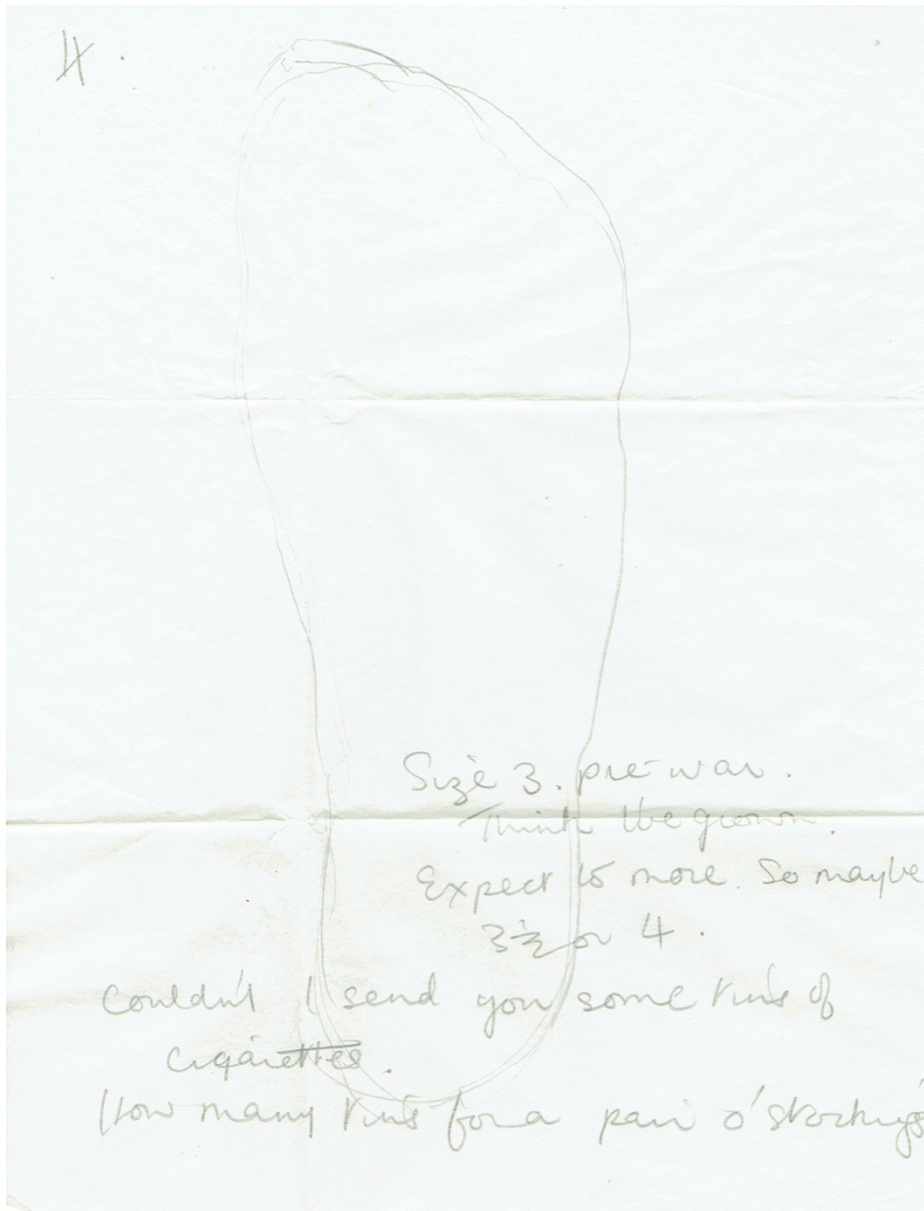 4.
Size 3. pre-war.
Think I've grown.
Expect to more. So maybe
3½ or 4.
Couldn't I send you some tins of
cigarettes.
How many tins for a pair o' stockings